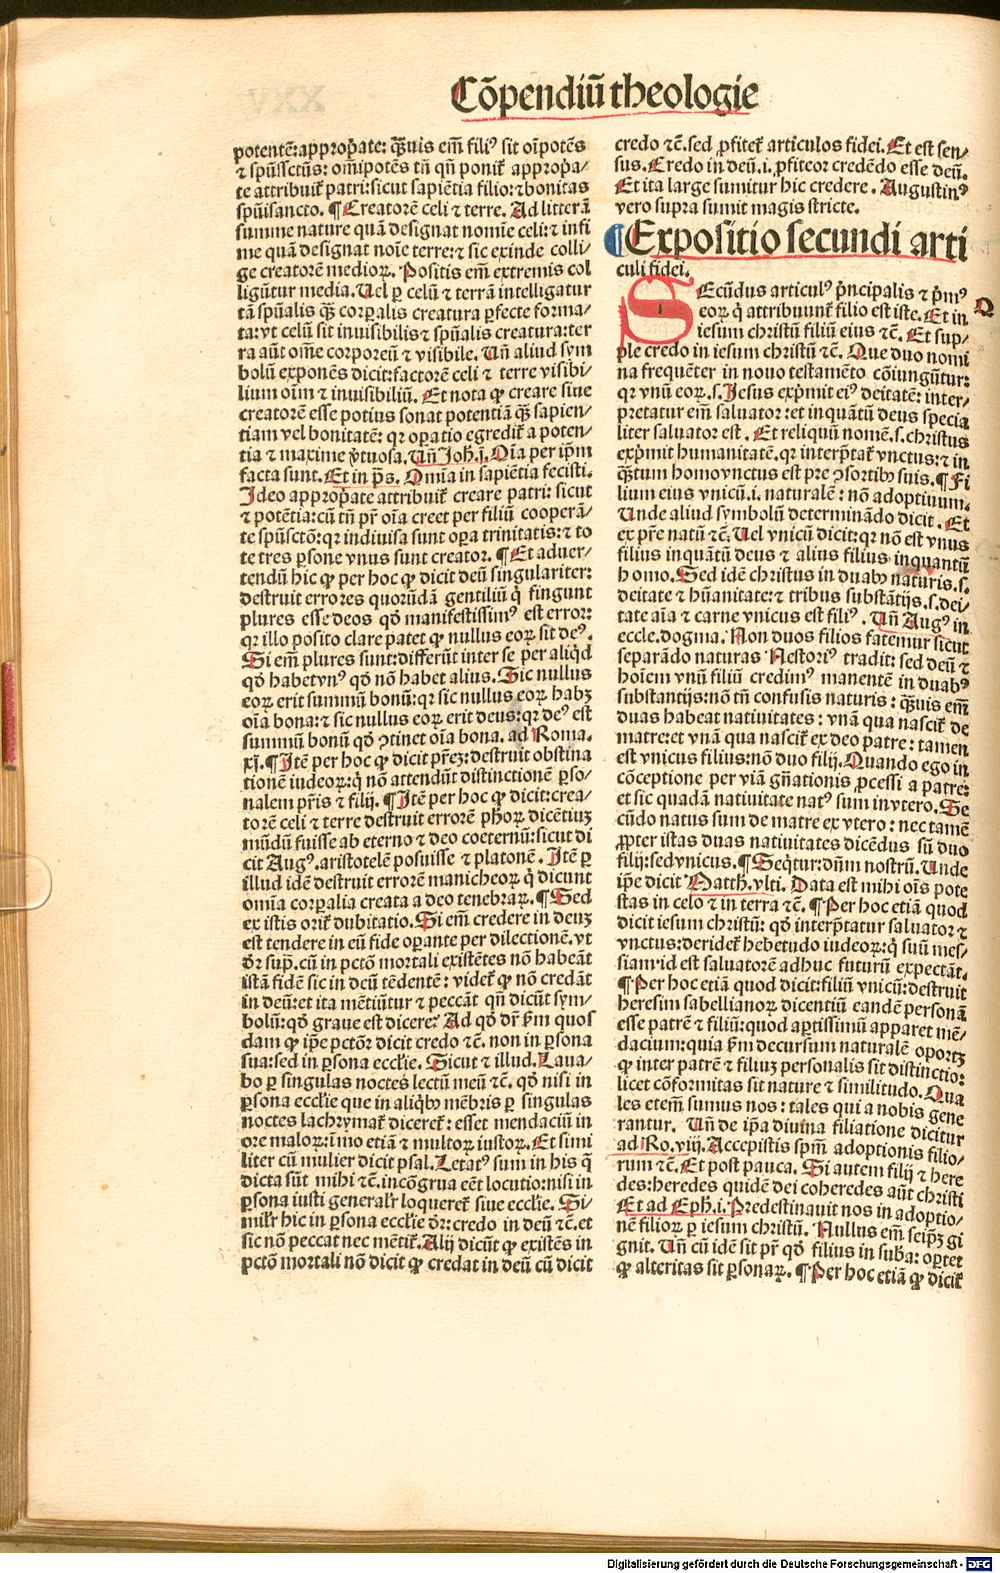 Cōpendiū theologie
potentē: approp̄ate: q̄uis em̄ fili⁹ sit oīpotēs
⁊ sp̄ussctūs: om̄ipotēs tn̄ qn̄ ponit̄ approp̄a-
te attribuit̄ patri: sicut sapiētia filio: ⁊ bonitas
sp̄uisancto. ¶ Creatorē celi ⁊ terre. Ad litterā
summe nature quā designat nomīe celi: ⁊ infi
me quā designat noīe terre: ⁊ sic exinde colli
ge creatorē medioꝝ. Positis em̄ extremis col
ligūtur media. Uel ꝑ celū ⁊ terrā intelligatur
tā sp̄ualis q̄ꝫ corꝑalis creatura ꝑfecte forma-
ta: vt celū sit inuisibilis ⁊ sp̄ualis creatura: ter
ra aūt om̄e corporeū ⁊ visibile. Un̄ aliud sym
bolū exponēs dicit: factorē celi ⁊ terre visibi-
lium oīm ⁊ inuisibiliū. Et nota ꝙ creare siue
creatorē esse potius sonat potentiā q̄ꝫ sapien-
tiam vel bonitatē: qꝛ oꝑatio egredit̄ a poten-
tia ⁊ maxime v̄tuosa. Un̄ Joh̄. i. Oīa per ip̄m
facta sunt. Et in p̄s. Om̄ia in sapiētia fecisti.
Ideo approp̄ate attribuit̄ creare patri: sicut
⁊ potētia: cū tn̄ pr̄ oīa creet per filiū cooperā-
te sp̄usctō: qꝛ indiuisa sunt oꝑa trinitatis: ⁊ to
te tres ꝑsone vnus sunt creator. ¶ Et aduer-
tendū hic ꝙ per hoc ꝙ dicit deū singulariter:
destruit errores quorūdā gentiliū q̄ fingunt
plures esse deos qd̄ manifestissim⁹ est error:
qꝛ illo posito clare patet ꝙ nullus eoꝝ sit de⁹.
Si em̄ plures sunt: differūt inter se per aliq̇d
qd̄ habet vn⁹ qd̄ nō habet alius. Sic nullus
eoꝝ erit summū bonū: qꝛ sic nullus eoꝝ habꝫ
oīa bona: ⁊ sic nullus eoꝝ erit deus: qꝛ de⁹ est
summū bonū qd̄ ꝯtinet oīa bona. ad Roma.
xj. ¶ Itē per hoc ꝙ dicit pr̄eꝫ: destruit obstina
tionē iudeoꝝ: q̇ nō attendūt distinctionē ꝑso-
nalem pr̄is ⁊ filij. ¶ Itē per hoc ꝙ dicit: crea-
torē celi ⁊ terre destruit errorē ph̄oꝝ dicētiuꝫ
mūdū fuisse ab eterno ⁊ deo coeternū: sicut di
cit Aug⁹. aristotelē posuisse ⁊ platonē. Itē ꝑ
illud idē destruit errorē manicheoꝝ q̇ dicunt
omīa corꝑalia creata a deo tenebraꝝ. ¶ Sed
ex istis orit̄ dubitatio. Si em̄ credere in deuꝫ
est tendere in eū fide oꝑante per dilectionē. vt
dr̄ sup̄. cū in pctō mortali existētes nō habeāt
istā fidē sic in deū tēdentē: videt̄ ꝙ nō credāt
in deū: et ita mētiūtur ⁊ peccāt qn̄ dicūt sym-
bolū: qd̄ graue est dicere? Ad qd̄ dr̄ ẜm quos
dam ꝙ ip̄e pctōr dicit credo ⁊c̄. non in ꝑsona
sua: sed in ꝑsona eccl̄ie. Sicut ⁊ illud. Laua-
bo ꝑ singulas noctes lectū meū ⁊c̄. qd̄ nisi in
ꝑsona eccl̄ie que in aliq̇bꝰ mēbris ꝑ singulas
noctes lachrymat̄ diceret̄: esset mendaciū in
ore maloꝝ: īmo etiā ⁊ multoꝝ iustoꝝ. Et simi
liter cū mulier dicit psal. Letat⁹ sum in his q̄
dicta sūt mihi ⁊c̄. incōgrua eēt locutio: nisi in
ꝑsona iusti generalr̄ loqueret̄ siue eccl̄ie. Si-
milr̄ hic in ꝑsona eccl̄ie dr̄: credo in deū ⁊c̄. et
sic nō peccat nec mētit̄. Alij dicūt ꝙ existēs in
pctō mortali nō dicit ꝙ credat in deū cū dicit
credo ⁊c̄. sed ꝓfitet̄ articulos fidei. Et est sen-
sus. Credo in deū. i. ꝓfiteor credēdo esse deū.
Et ita large sumitur hic credere. Augustin⁹
vero supra sumit magis stricte.
¶ Expositio secundi arti
culi fidei.
SEcūdus articul⁹ p̄ncipalis ⁊ p̄m⁹
eoꝝ q̇ attribuunt̄ filio est iste. Et in
iesum christū filiū eius ⁊c̄. Et sup-
ple credo in iesum christū ⁊c̄. Que duo nomi
na frequēter in nouo testamēto cōiungūtur:
qꝛ vnū eoꝝ. s. Jesus exp̄mit ei⁹ deitatē: inter-
pretatur em̄ saluator: et inquātū deus specia
liter saluator est. Et reliquū nomē. s. christus
exp̄mit humanitatē. qꝛ interp̄tat̄ vnctus: ⁊ in
q̄ꝫtum homo vnctus est pre ꝯsortibꝰ suis. ¶ Fi
lium eius vnicū. i. naturalē: nō adoptiuum.
Unde aliud symbolū determinādo dicit. Et
ex pr̄e natū ⁊c̄. Uel vnicū dicit: qꝛ nō est vnus
filius inquātū deus ⁊ alius filius inquantū
homo. Sed idē christus in duabꝰ naturis. s.
deitate ⁊ hūanitate: ⁊ tribus substātijs. s. dei-
tate aīa ⁊ carne vnicus est fili⁹. Un̄ Aug⁹ in
eccle. dogma. Non duos filios fatemur sicut
separādo naturas Nestori⁹ tradit: sed deū ⁊
hoīem vnū filiū credim⁹ manentē in duab⁹
substantijs: nō tn̄ confusis naturis: q̄uis em̄
duas habeat natiuitates: vnā qua nascit̄ de
matre: et vnā qua nascit̄ ex deo patre: tamen
est vnicus filius: nō duo filij. Quando ego in
cōceptione per viā gn̄ationis ꝓcessi a patre:
et sic quadā natiuitate nat⁹ sum in vtero. Se
cūdo natus sum de matre ex vtero: nec tamē
ꝓpter istas duas natiuitates dicēdus sū duo
filij: sed vnicus. ¶ Seq̇tur: dn̄m nostrū. Unde
ip̄e dicit Matth. vlti. Data est mihi oīs pote
stas in celo ⁊ in terra ⁊c̄. ¶ Per hoc etiā quod
dicit iesum christū: qd̄ interp̄tatur saluator ⁊
vnctus: deridet̄ hebetudo iudeoꝝ: q̇ suū mes-
siam id est saluatorē adhuc futurū expectāt.
¶ Per hoc etiā quod dicit: filiū vnicū: destruit
heresim sabellianoꝝ dicentiū eandē personā
esse patrē ⁊ filiū: quod aꝑtissimū apparet mē-
dacium: quia ẜm decursum naturalē oportꝫ
ꝙ inter patrē ⁊ filiuꝫ personalis sit distinctio:
licet cōformitas sit nature ⁊ similitudo. Qua
les etem̄ sumus nos: tales qui a nobis gene
rantur. Un̄ de ip̄a diuina filiatione dicitur
ad Ro. viij. Accepistis sp̄m adoptionis filio-
rum ⁊c̄. Et post pauca. Si autem filij ⁊ here
des: heredes quidē dei coheredes aūt christi
Et ad Eph̄. i. Predestinauit nos in adoptio-
nē filioꝝ ꝑ iesum christū. Nullus em̄ seip̄ꝫ gi
gnit. Un̄ cū idē sit pr̄ qd̄ filius in suba: oꝑtet
ꝙ alteritas sit ꝑsonaꝝ. ¶ Per hoc etiā ꝙ dicit̄
Q
Digitalisierung gefördert durch die Deutsche Forschungsgemeinschaft - DFG